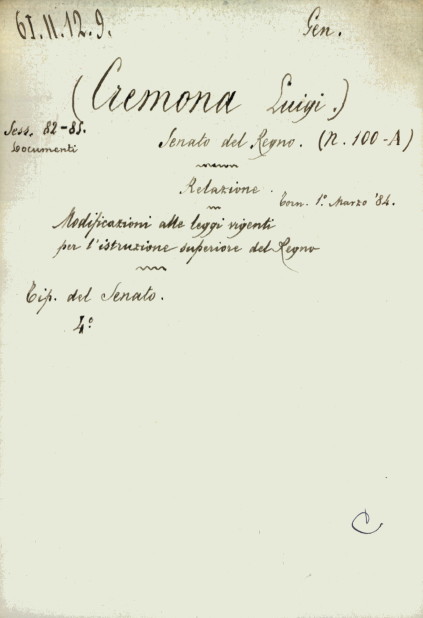 61.11.12.9. Gen.
(Cremona Luigi.)
Sess. 82-85. Senato del Regno. (N. 100-A)
Documenti
Relazione.
Torn. 1º. Marzo '84.
Modificazioni alle leggi vigenti
per l'istruzione superiore del Regno
Tip. del Senato.
4º
C